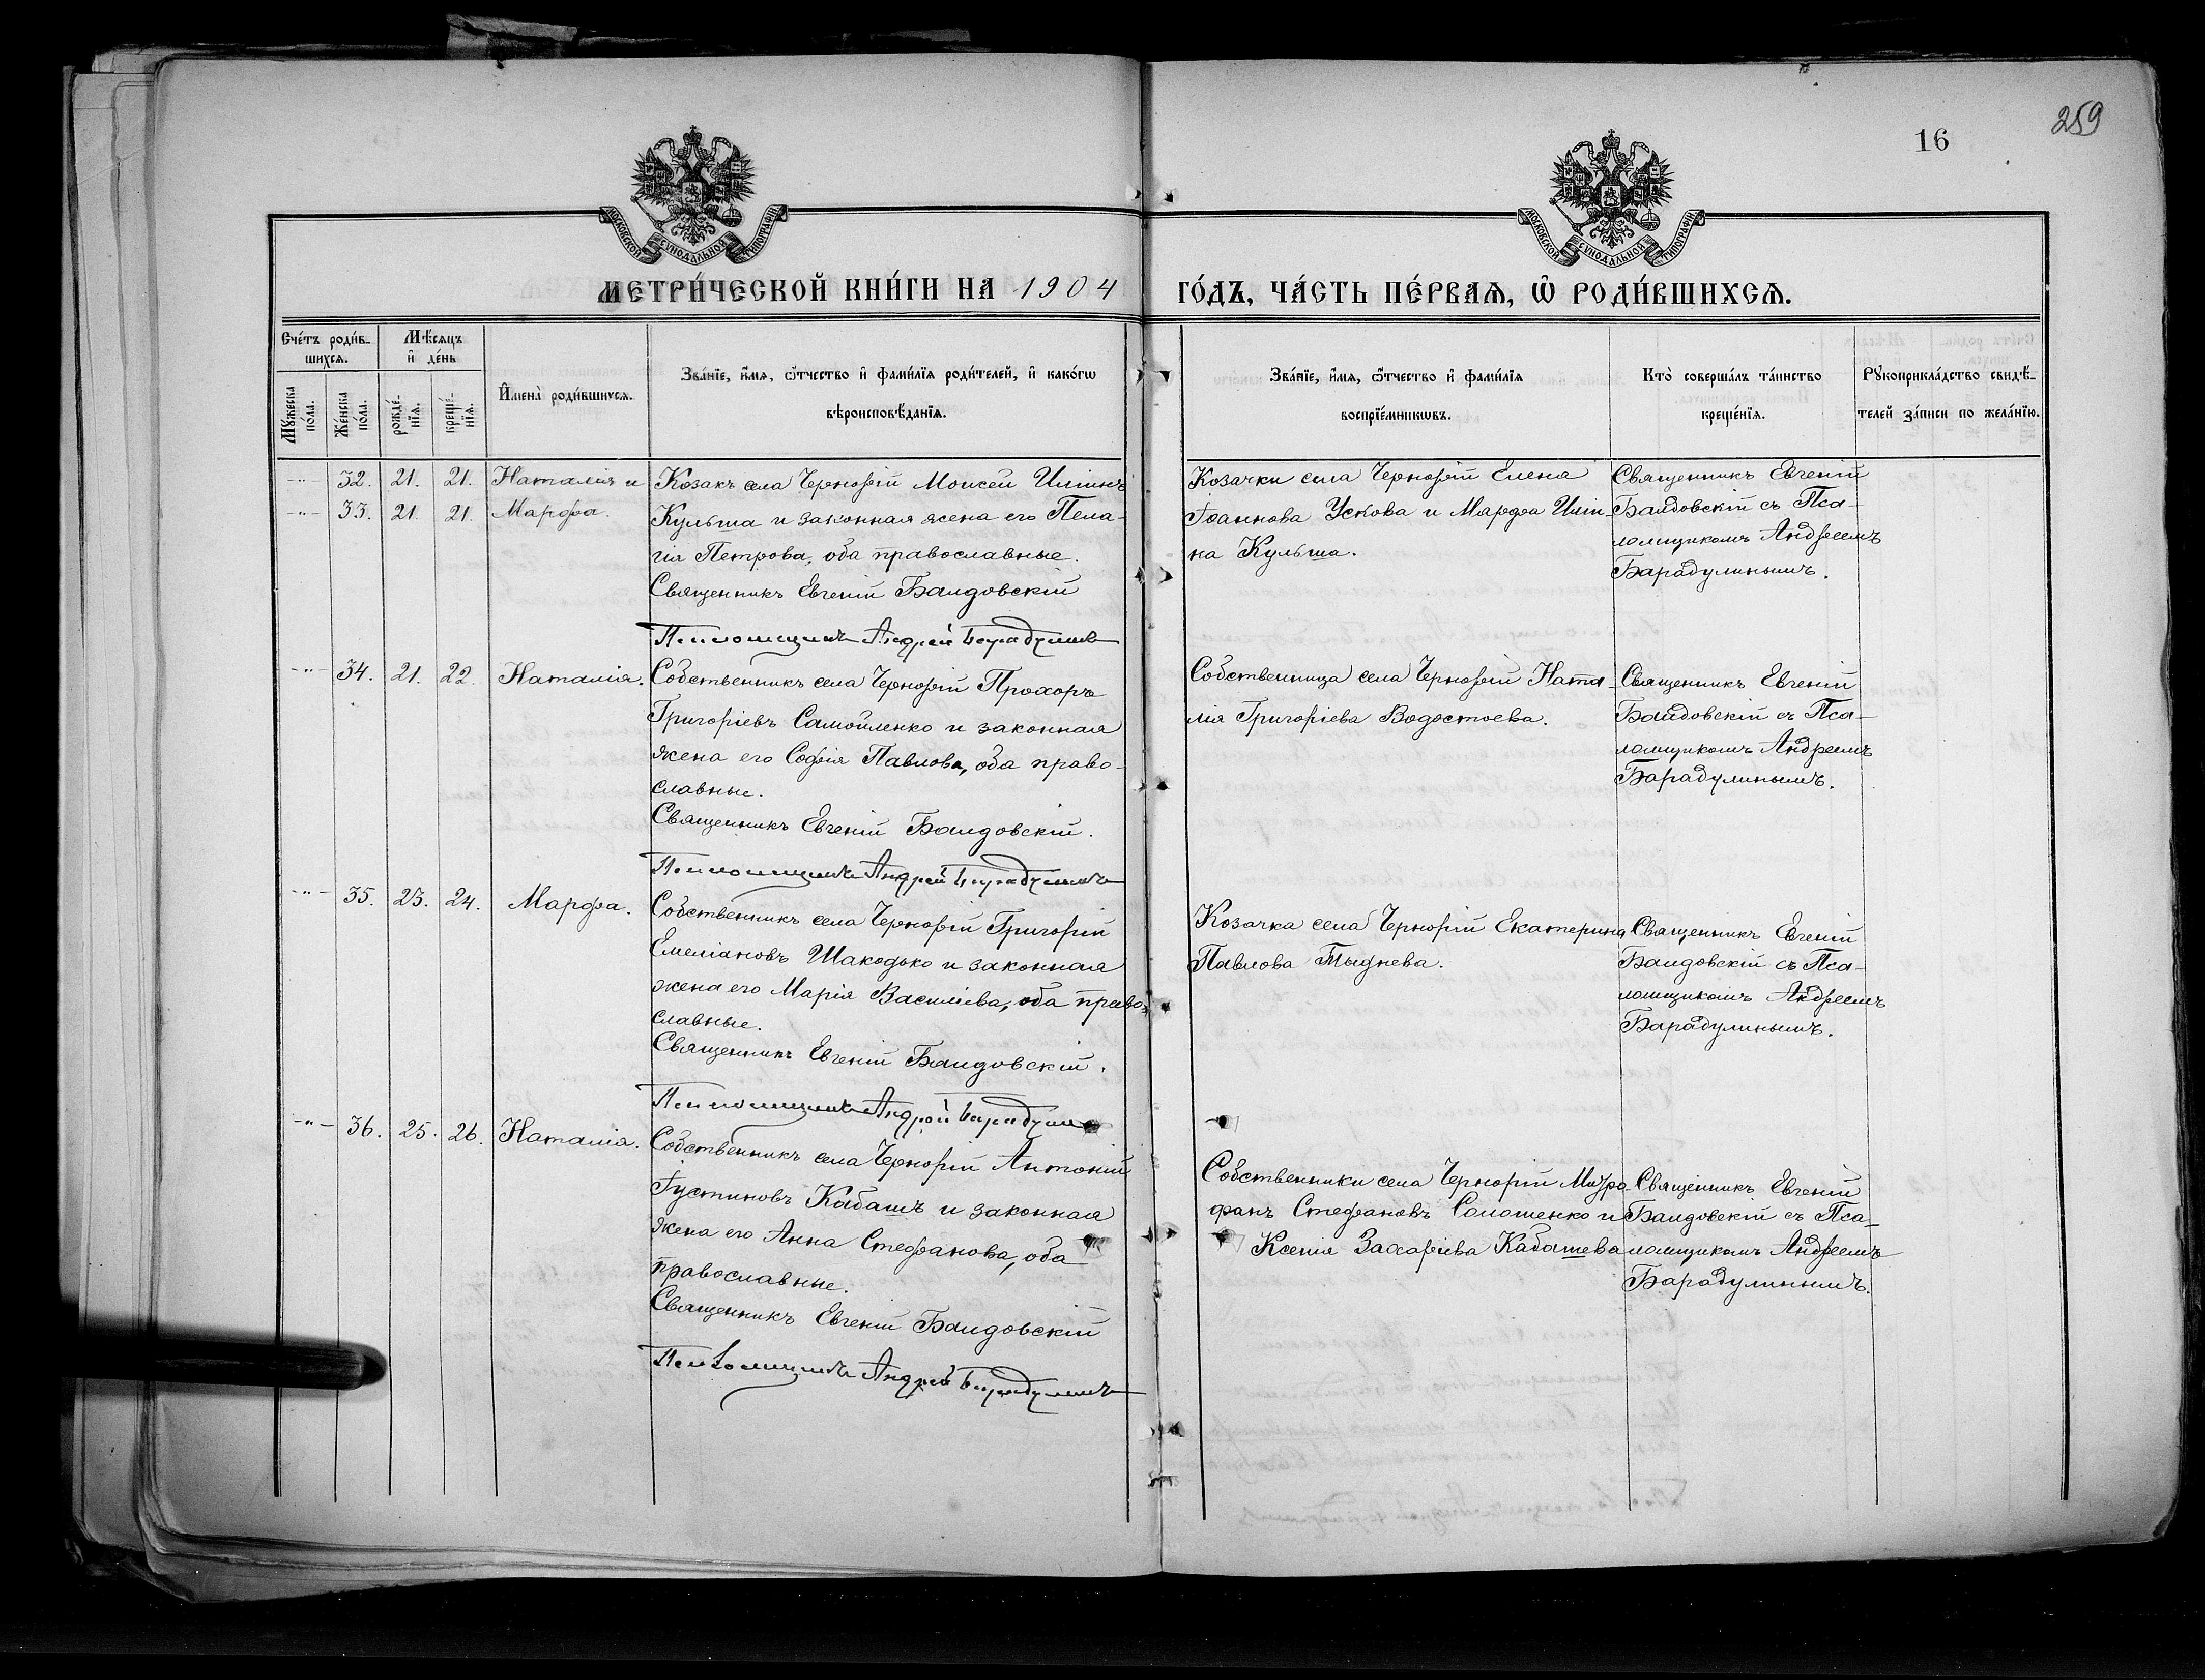 259
16
МОСКОВСКОЙ СѴНОДАЛЬНОЙ ТИПОГРАФІИ
МОСКОВСКОЙ СѴНОДАЛЬНОЙ ТИПОГРАФІИ
МЕТРИ́ЧЕСКОЙ КНИ́ГИ НА 1904 ГО́ДЪ, ЧА́СТЬ ПЕ́РВАѦ, Ѡ҆ РОДИ́ВШИХСѦ.
Сче́тъ роди́в-
шихсѧ.
Мѣ́сѧцъ
и҆ де́нь
Мꙋ́жеска
по́ла.
Же́нска
по́ла.
рожде́-
нїѧ.
креще́-
нїѧ.
И҆мена̀ роди́вшихсѧ.
Зва́нїе, и҆́мѧ, ѻ҆́тчество и҆ фами́лїѧ роди́телей, и҆ како́гѡ
вѣроисповѣ́данїѧ.
Зва́нїе, и҆́мѧ, ѻ҆́тчество и҆ фами́лїѧ
воспрїе́мникѡвъ.
Кто̀ соверша́лъ та́инство
креще́нїѧ.
Рꙋкоприкла́дство свидѣ́-
телей за́писи по жела́нїю.
-"- 32. 21. 21. Наталія и
-"- 33. 21. 21. Марѳа.
Козакъ села Чернофій Моисей Иліинъ
Кульша и законная жена его Пела-
гія Петрова, оба православные.
Священникъ Евгеній Баидовскій
Псаломщикъ Андрей Барадулинъ
Козачки села Чернофій Елена
Іоаннова Ускова и Марѳа Иліи-
на Кульша.
Священникъ Евгеній
Баидовскій съ Пса-
ломщикомъ Андреемъ
Барадулинымъ.
-"- 34. 21. 22. Наталія.
Собственникъ села Чернофій Прохоръ
Григоріевъ Самойленко и законная
жена его Софія Павлова, оба право-
славные.
Священникъ Евгеній Баидовскій.
Псаломщикъ Андрей Барадулинъ
Собственница села Чернофій Ната-
лія Григоріева Водостоева.
Священникъ Евгеній
Баидовскій съ Пса-
ломщикомъ Андреемъ
Барадулинымъ.
-"- 35. 23. 24. Марѳа.
Собственникъ села Чернофій Григорій
Емеліановъ Шакодько и законная
жена его Марія Василіева, оба право-
славные.
Священникъ Евгеній Баидовскій.
Псаломщикъ Андрей Барадулинъ
Козачка села Чернофій Екатерина
Павлова Тыднева.
Священникъ Евгеній
Баидовскій съ Пса-
ломщикомъ Андреемъ
Барадулинымъ.
-"- 36. 25. 26. Наталія.
Собственникъ села Чернофій Антоній
Іустиновъ Кабашъ и законная
жена его Анна Стефанова, оба
православные.
Священникъ Евгеній Баидовскій
Псаломщикъ Андрей Барадулинъ
Собственники села Чернофій Митро-
фанъ Стефановъ Соломенко и
Ксенія Захаріева Кабашева
Священникъ Евгеній
Баидовскій съ Пса-
ломщикомъ Андреемъ
Барадулинымъ.